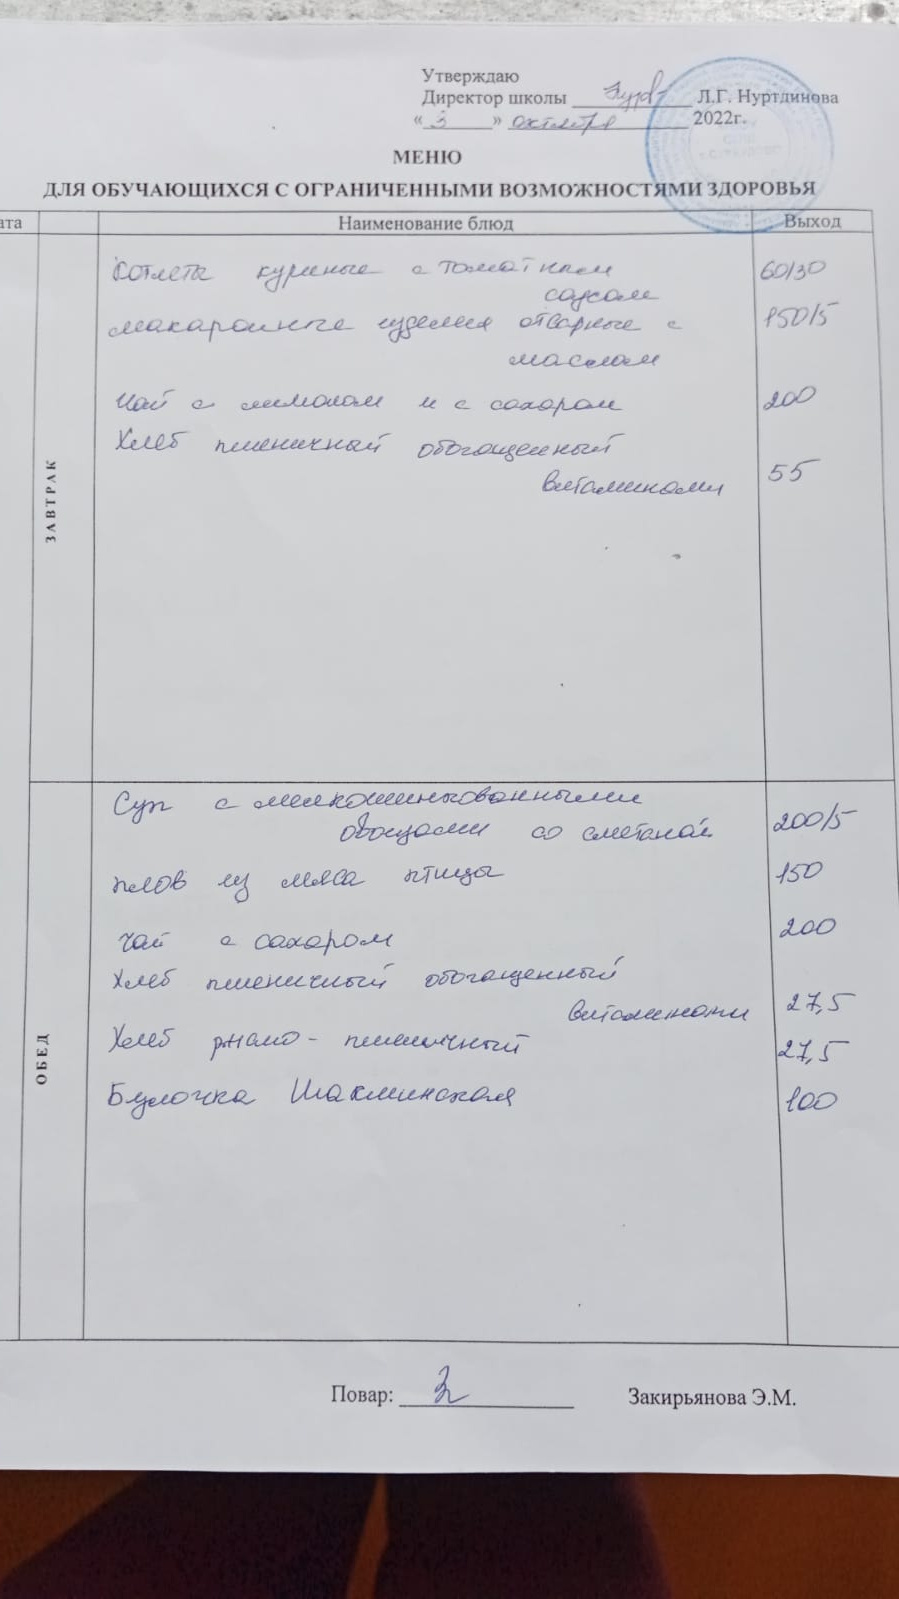 Утверждаю
Директор школы Л.Г. Нуртдинова
« 3 » октября 2022г.
МЕНЮ
ДЛЯ ОБУЧАЮЩИХСЯ С ОГРАНИЧЕННЫМИ ВОЗМОЖНОСТЯМИ ЗДОРОВЬЯ
ата Наименование блюд Выход
ЗАВТРАК
Котлеты куриные с томатным 60/30
соусом
макаронные изделия отварные с 150/5
маслом
чай с лимоном и с сахаром 200
Хлеб пшеничный обогащенный
витаминами 55
ОБЕД
Суп с мелкошинкованными
овощами со сметаной 200/5
плов из мяса птицы 150
чай с сахаром 200
Хлеб пшеничный обогащенный
витаминами 27,5
Хлеб ржано-пшеничный 27,5
Булочка Шакминская 100
Повар: Закирьянова Э.М.